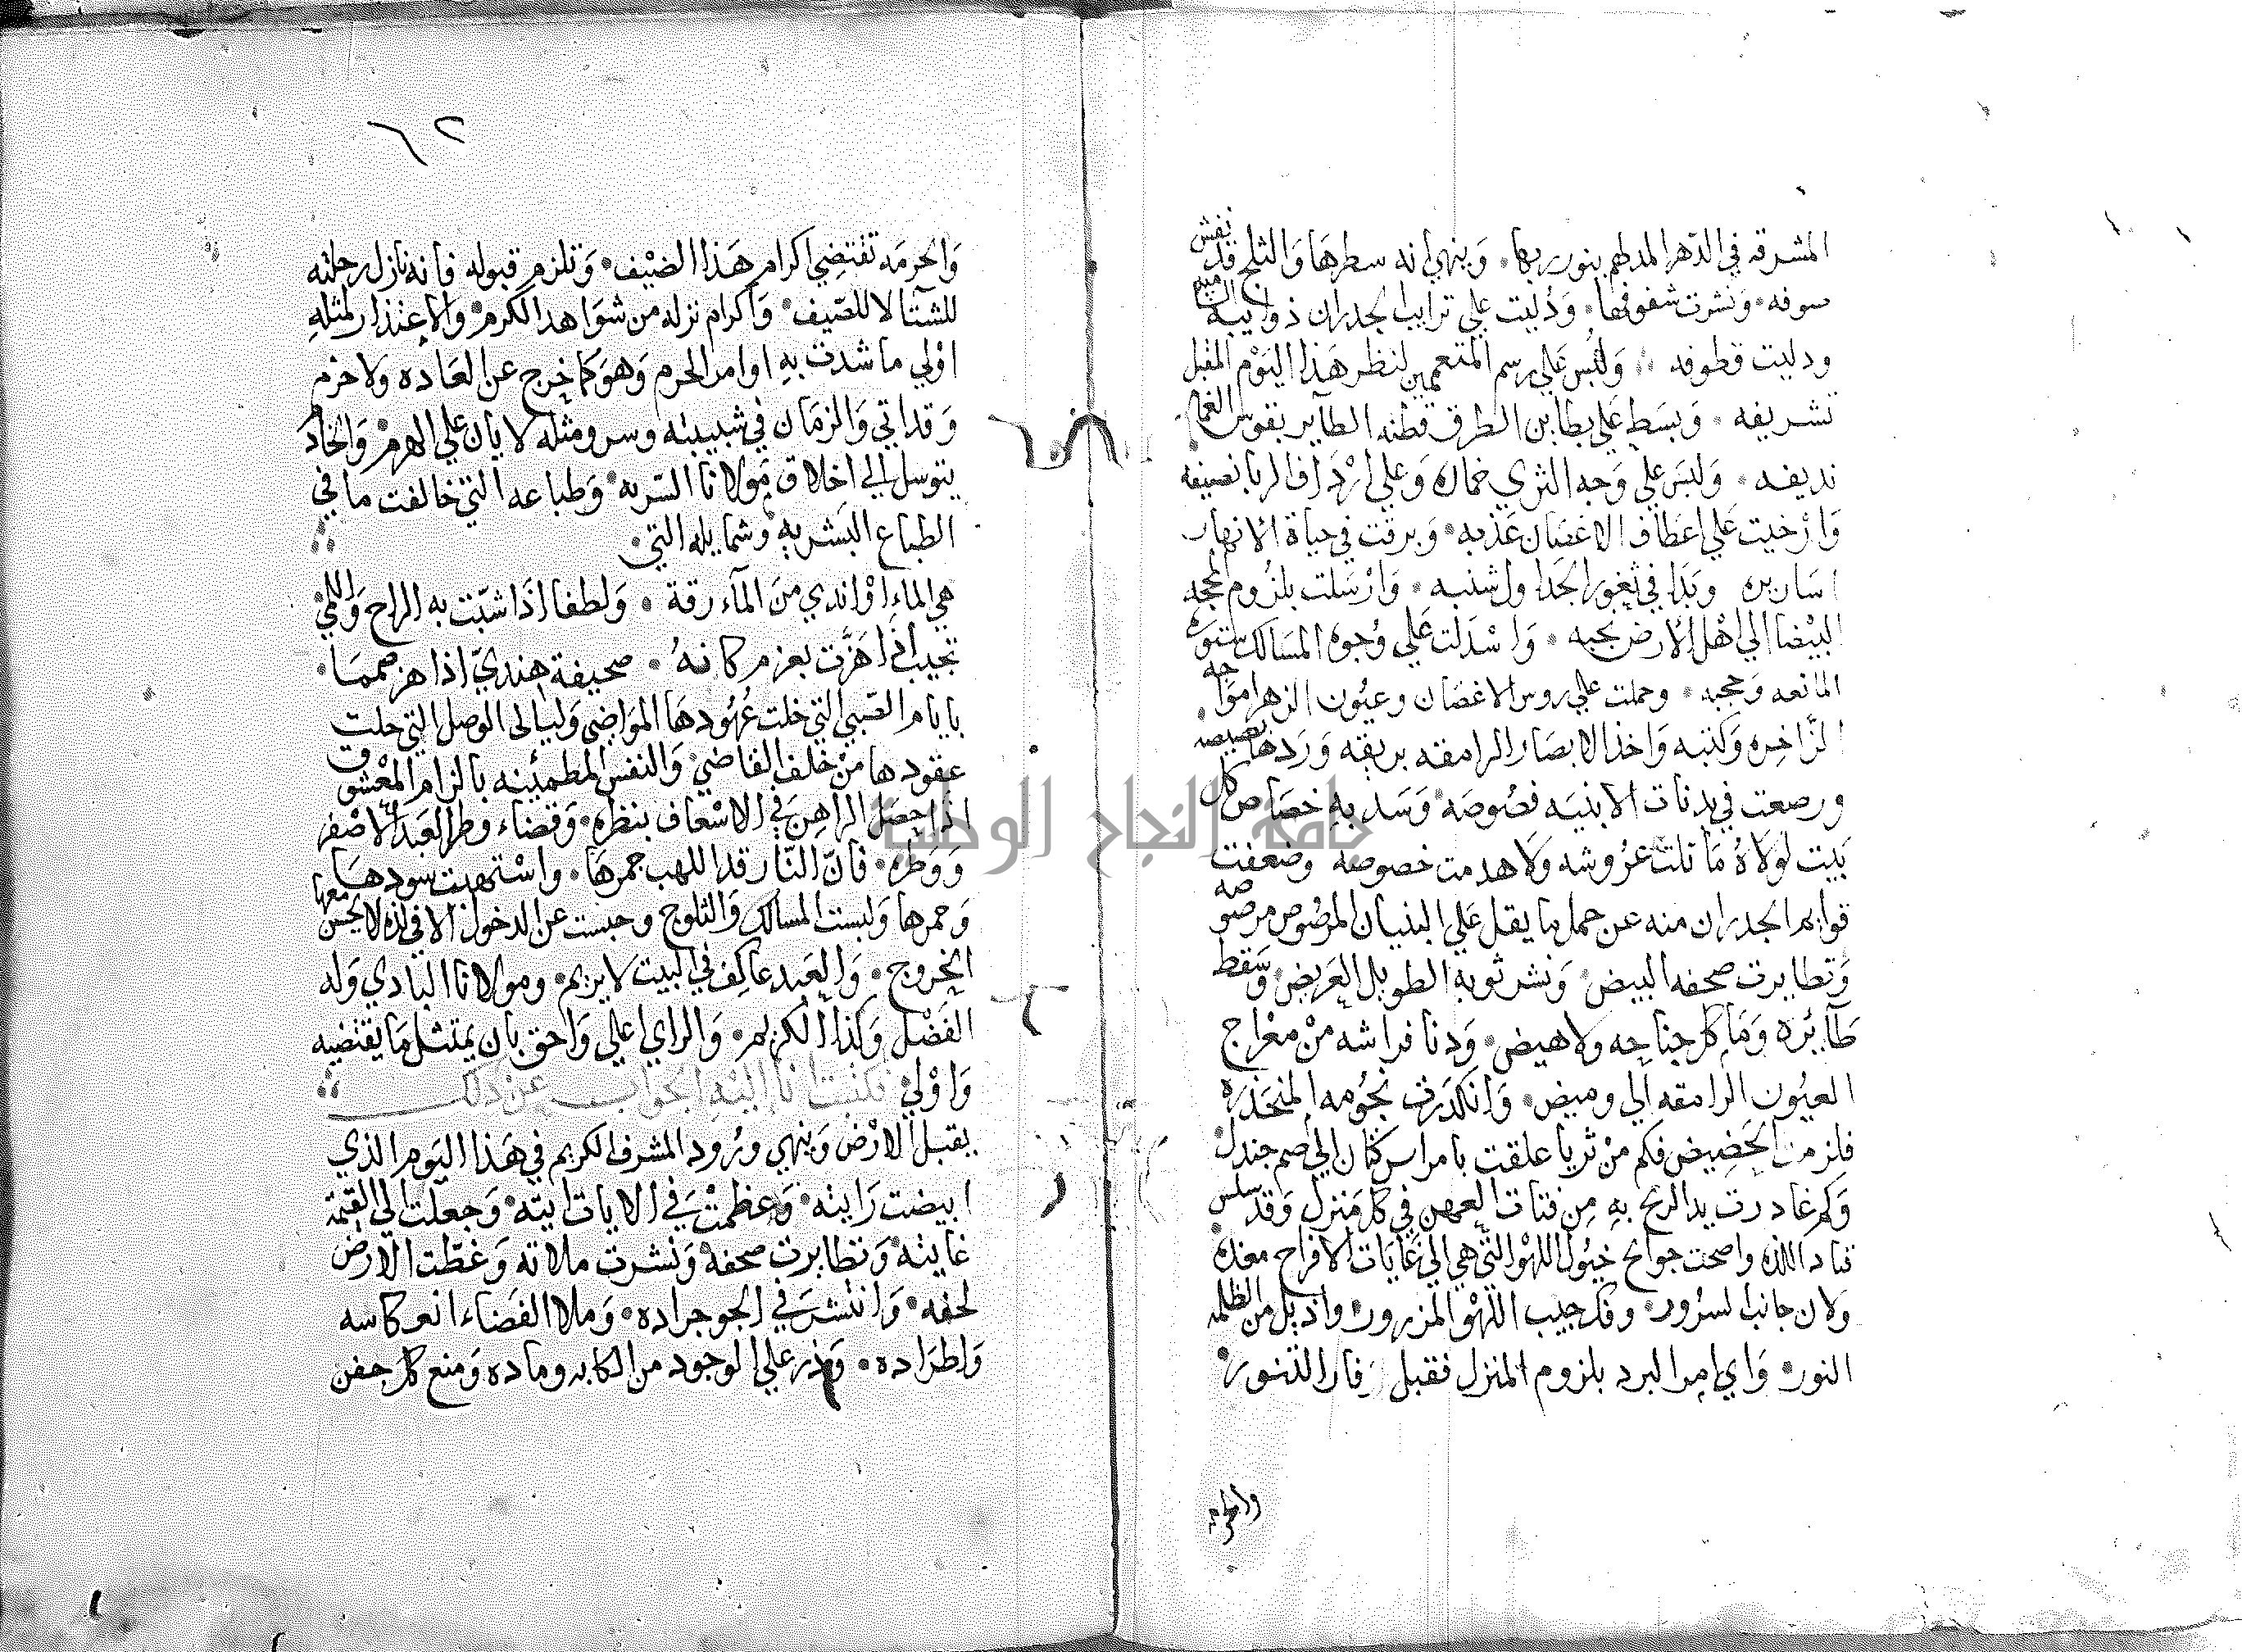 المشرقه في الدهر المدلهم بنور ربها وينهي انه سطرها والثلج قد نفش
صوفه ونشرت شفوفها ودليت علي ترايب الجدران ذوايبه
ودليت قطوفه ولبس علي رسم المتعممين لنظر هذا اليوم المقبل
تشريفه وبسط علي بطاين الطرق قطنه الطاير بقوس الغمام
نديفه ولبس علي وجه الثري خماره وعلي ارداف الربا نصيفه
وارخيت علي اعطاف الاغصان عذبه وبرقت في حياة الانهار
اساريره وبدا في ثغور الجداول شنبه وارسلت بلزوم
البيضا الي اهل الارض وانسدلت علي وجوه المسالك ستوره
المانعه وحجبه وحملت علي روس الاغصان وعيون الزهر امواجه
الزاخره وكتبه واخذ الابصار الرامقه بريقه وردها بصيصه
ورصعت في بدنات الابنيه فصوصه وسد به خصاص كل
بيت لولاه ما ثلت عروشه ولا هدمت خصوصه وضعفت
قوايم الجدران منه عن حمل ما يقل علي البنيان المرصوص مرصوصه
وتطايرت صحفه البيض ونشر ثوبه الطويل العريض وسقط
طآئره وما كل جناحه ولا هيض ودنا فراشه من معراج
العيون الرامقه الي وميض وانكدرت نجومه المنحدره
فلزمت الحضيض فكم من ثريا علقت بامراس كتان الي صم جندل
وكم غادرت يد الريح به من فتات العهن في كل منزل وقد سلس
قياد اللذه واصحت جوامح خيول اللهو التي هي الي غايات الافراح مغذه
ولان جانب السرور وفك جيب اللهو المزرور واديل من الظلمه
النور واي امر البرد بلزوم المنزل فقبل فار التنور
والحرمه
٦٢
والحرمه تقتضي اكرام هذا الضيف وتلزم قبوله فانه نازل رحلته
للشتآ لا للصيف واكرام نزله من شواهد الكرم والاعتذار لمثله
اولي ما شدت به اوامر الحرم وهو كما خرج عن العاده ولا خرم
وقد اتي والزمان في شبيبته وسر ومثله لا يان علي الهرم والخادم
يتوسل الي اخلاق مولانا السريه وطباعه التي خالفت ما في
الطباع البشريه وشمايله التي
هي الماء او اندي من المآء رقة ولطفا اذا شبت به الراح واللمي
تجيب اذا هزت بعزم كانه صحيفة هندي اذا هز صمما
بايام الصبي التي خلت عهودها المواضي وليالي الوصل التي حلت
عقودها من خلف القاضي والنفس المطمينه بالزام المعشوق
اذا حصل الراهن في الاسعاف بنظره وقضاء وطر العبد الاصفر
ووطره فان النار قد اللهب جمرها سودها
وحمرها ولبست المسالك والثلوج وحبست عن الدخول الا في لذه لا يحسن معها
الخروج والعبد عاكف في البيت لا يريم ومولانا البادي وله
الفضل وكذا الكريم والراي اعلي واحق بان يمتثل ما يقتضيه
واولي فكتبت انا اليه الجواب عن ذلك
يقبل الارض وينهي ورود المشرف الكريم في هذا اليوم الذي
ابيضت رايته وعظمت في الايات ايته وجعلت الي القيمه
غايته وتطايرت صحفه ونشرت ملاته وغطت الارض
لحفه وانتشر في الجو جراده وملا الفضاء انعكاسه
واطراده علي الوجود من الكابه وماده ومنع كل جفن
جامعة النجاح الوطنية